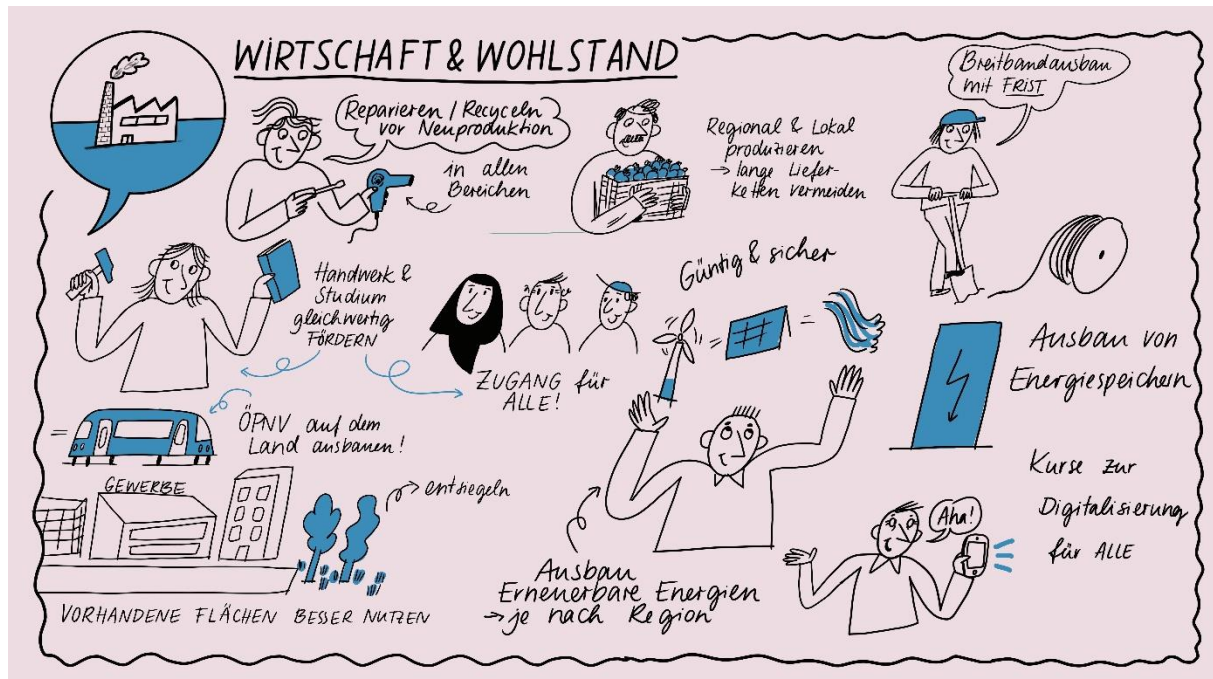 WIRTSCHAFT & WOHLSTAND
Reparieren / Recyceln
vor Neuproduktion
in allen
Bereichen
Regional & Lokal
produzieren
→ lange Liefer-
ketten vermeiden
Breitbandausbau
mit FRIST
Handwerk &
Studium
gleichwertig
FÖRDERN
ZUGANG für
ALLE!
Güntig & sicher
= =
Ausbau von
Energiespeichern
=
ÖPNV auf dem
Land ausbauen!
GEWERBE
entsiegeln
VORHANDENE FLÄCHEN BESSER NUTZEN
Ausbau
Erneuerbare Energien
→ je nach Region
Aha!
Kurse zur
Digitalisierung
für ALLE